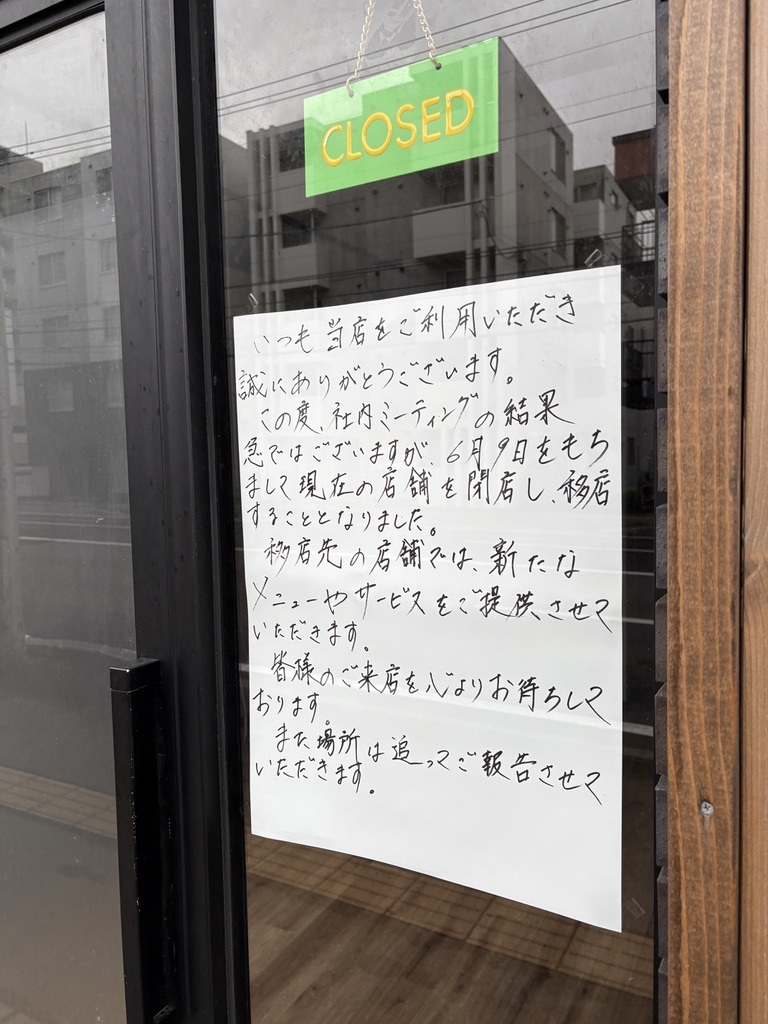 CLOSED
いつも当店をご利用いただき
誠にありがとうございます。
この度、社内ミーティングの結果
急ではございますが、6月9日をもち
まして現在の店舗を閉店し、移店
することとなりました。
移店先の店舗では、新たな
メニューやサービスをご提供させて
いただきます。
皆様のご来店を心よりお待ちして
おります。
また場所は追ってご報告させて
いただきます。